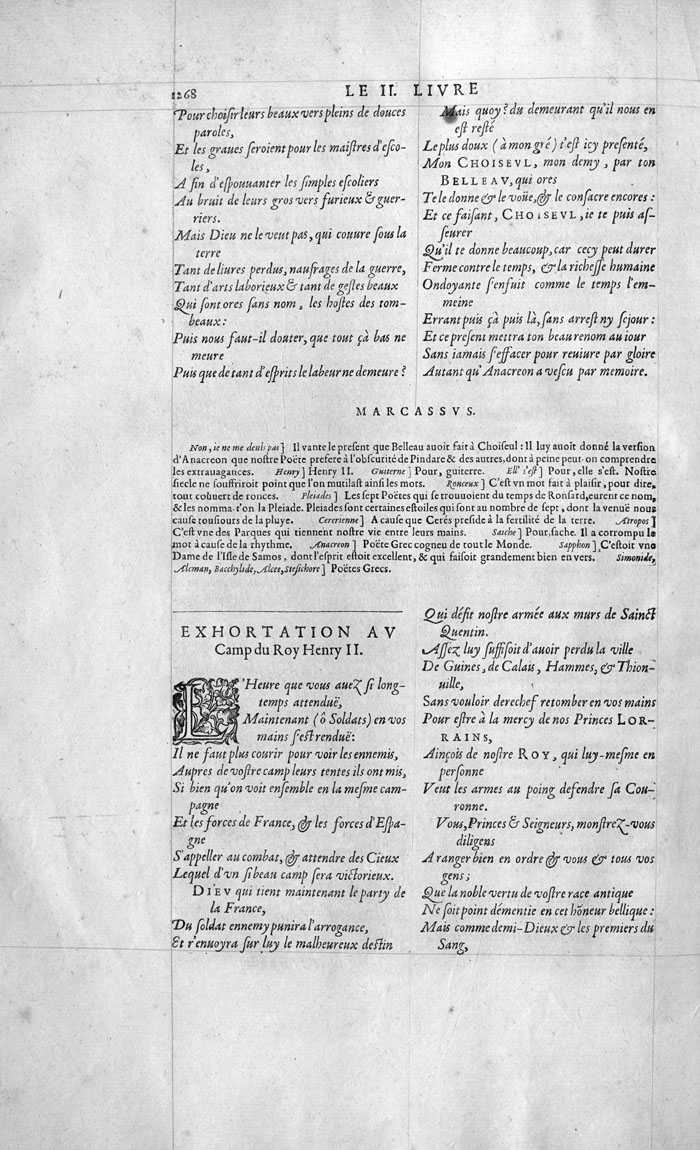 1268
LE II. LIVRE
Pour choisir leurs beaux vers pleins de douces
paroles,
Et les graues seroient pour les maistres d'esco-
les,
A fin d'espouuanter les simples escoliers
Au bruit de leurs gros vers furieux & guer-
riers.
Mais Dieu ne le veut pas, qui couure sous la
terre
Tant de liures perdus, naufrages de la guerre,
Tant d'arts laborieux & tant de gestes beaux
Qui sont ores sans nom, les hostes des tom-
beaux:
Puis nous faut-il douter, que tout çà bas ne
meure
Puis que de tant d'esprits le labeur ne demeure?
Mais quoy? du demeurant qu'il nous en
est resté
Le plus doux (à mon gré) t'est icy presenté,
Mon CHOISEVL, mon demy, par ton
BELLEAV, qui ores
Te le donne & le voüe, & le consacre encores:
Et ce faisant, CHOISEVL, ie te puis as-
seurer
Qu'il te donne beaucoup, car cecy peut durer
Ferme contre le temps, & la richesse humaine
Ondoyante s'enfuit comme le temps l'em-
meine
Errant puis çà puis là, sans arrest ny sejour:
Et ce present mettra ton beau renom au iour
Sans iamais s'effacer pour reuiure par gloire
Autant qu'Anacreon a vescu par memoire.
MARCASSVS.
Non, ie ne me deuls pas] Il vante le present que Belleau auoit fait à Choiseul: Il luy auoit donné la version
d'Anacreon que nostre Poëte prefere à l'obscurité de Pindare & des autres, dont à peine peut-on comprendre
les extrauagances. Henry] Henry II. Guiterne] Pour, guiterre. Ell' s'est] Pour, elle s'est. Nostre
siecle ne souffriroit point que l'on mutilast ainsi les mots. Ronceux] C'est vn mot fait à plaisir, pour dire,
tout couuert de ronces. Pleiades] Les sept Poëtes qui se trouuoient du temps de Ronsard, eurent ce nom,
& les nomma-t'on la Pleiade. Pleiades sont certaines estoiles qui sont au nombre de sept, dont la venuë nous
cause tousiours de la pluye. Cererienne] A cause que Cerés preside à la fertilité de la terre. Atropos]
C'est vne des Parques qui tiennent nostre vie entre leurs mains. Saiche] Pour, sache. Il a corrompu le
mot à cause de la rhythme. Anacreon] Poëte Grec cogneu de tout le Monde. Sapphon] C'estoit vne
Dame de l'Isle de Samos, dont l'esprit estoit excellent, & qui faisoit grandement bien en vers. Simonide,
Alcman, Bacchylide, Alcee, Stesichore] Poëtes Grecs.
EXHORTATION AV
Camp du Roy Henry II.
L'Heure que vous auez si long-
temps attenduë,
Maintenant (ô Soldats) en vos
mains s'est renduë:
Il ne faut plus courir pour voir les ennemis,
Aupres de vostre camp leurs tentes ils ont mis,
Si bien qu'on voit ensemble en la mesme cam-
pagne
Et les forces de France, & les forces d'Espa-
gne
S'appeller au combat, & attendre des Cieux
Lequel d'vn si beau camp sera victorieux.
DIEV qui tient maintenant le party de
la France,
Du soldat ennemy punira l'arrogance,
Et r'enuoyra sur luy le malheureux destin
Qui défit nostre armée aux murs de Sainct
Quentin.
Assez luy suffisoit d'auoir perdu la ville
De Guines, de Calais, Hammes, & Thion-
uille,
Sans vouloir derechef retomber en vos mains
Pour estre à la mercy de nos Princes LOR-
RAINS,
Ainçois de nostre ROY, qui luy-mesme en
personne
Veut les armes au poing defendre sa Cou-
ronne.
Vous, Princes & Seigneurs, monstrez-vous
diligens
A ranger bien en ordre & vous & tous vos
gens;
Que la noble vertu de vostre race antique
Ne soit point démentie en cet hõneur bellique:
Mais comme demi-Dieux & les premiers du
Sang,